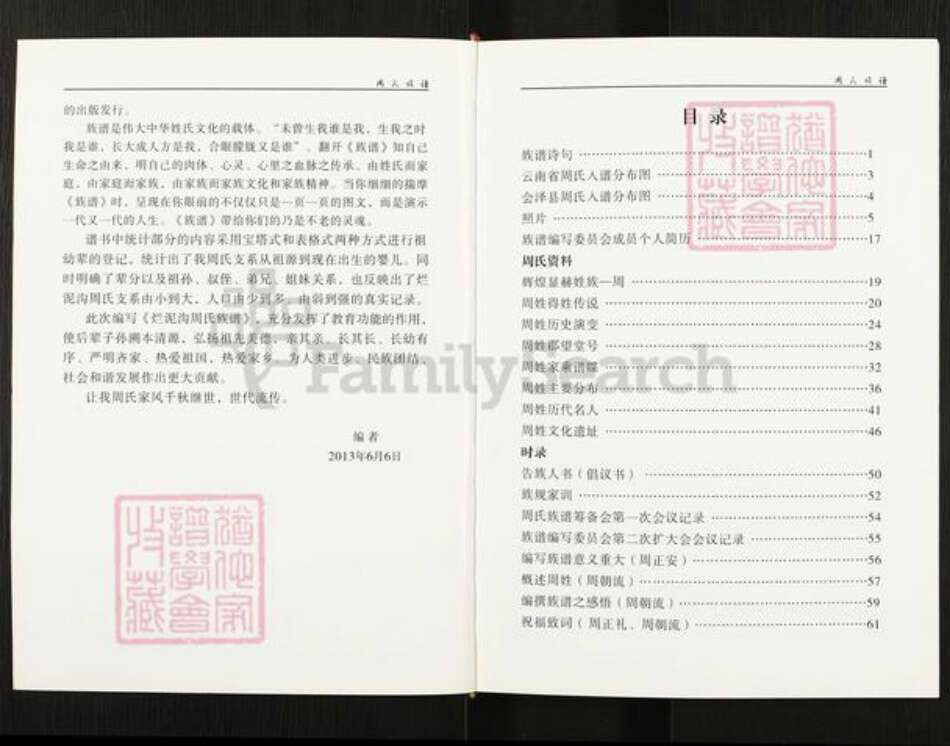 周氏族谱
的出版发行。
族谱是伟大中华姓氏文化的载体。“未曾生我谁是我，生我之时
我是谁，长大成人方是我，合眼朦胧又是谁”。翻开《族谱》知自己
生命之由来，明自己的肉体、心灵、心里之血脉之传承。由姓氏而家
庭，由家庭而家族，由家族而家族文化和家族精神。当你细细的揣摩
《族谱》时，呈现在你眼前的不仅仅只是一页一页的图文，而是演示
一代又一代的人生。《族谱》带给你们的乃是不老的灵魂。
谱书中统计部分的内容采用宝塔式和表格式两种方式进行祖
幼辈的登记，统计出了我周氏支系从祖源到现在出生的婴儿。同
时明确了辈分以及祖孙、叔侄、弟兄、姐妹关系，也反映出了烂
泥沟周氏支系由小到大，人口由少到多，由弱到强的真实记录。
此次编写《烂泥沟周氏族谱》，充分发挥了教育功能的作用，
使后辈子孙溯本清源，弘扬祖先美德、亲其亲、长其长、长幼有
序、严明齐家、热爱祖国，热爱家乡，为人类进步、民族团结、
社会和谐发展作出更大贡献。
让我周氏家风千秋继世，世代流传。
编者
2013年6月6日
猶他家
譜學會
收藏
周氏族谱
目录
族谱诗句 ……1
云南省周氏人谱分布图 ……3
会泽县周氏人谱分布图 ……4
照片 ……5
族谱编写委员会成员个人简历 ……17
周氏资料
辉煌显赫姓族—周 ……19
周姓得姓传说 ……20
周姓历史演变 ……24
周姓郡望堂号 ……28
周姓家乘谱牒 ……32
周姓主要分布 ……36
周姓历代名人 ……41
周姓文化遗址 ……46
时录
告族人书（倡议书） ……50
族规家训 ……52
周氏族谱筹备会第一次会议记录 ……54
族谱编写委员会第二次扩大会会议记录 ……55
编写族谱意义重大（周正安） ……56
概述周姓（周朝流） ……57
编撰族谱之感悟（周朝流） ……59
祝福致词（周正礼、周朝流） ……61
猶他家
譜學會
收藏
FamilySearch